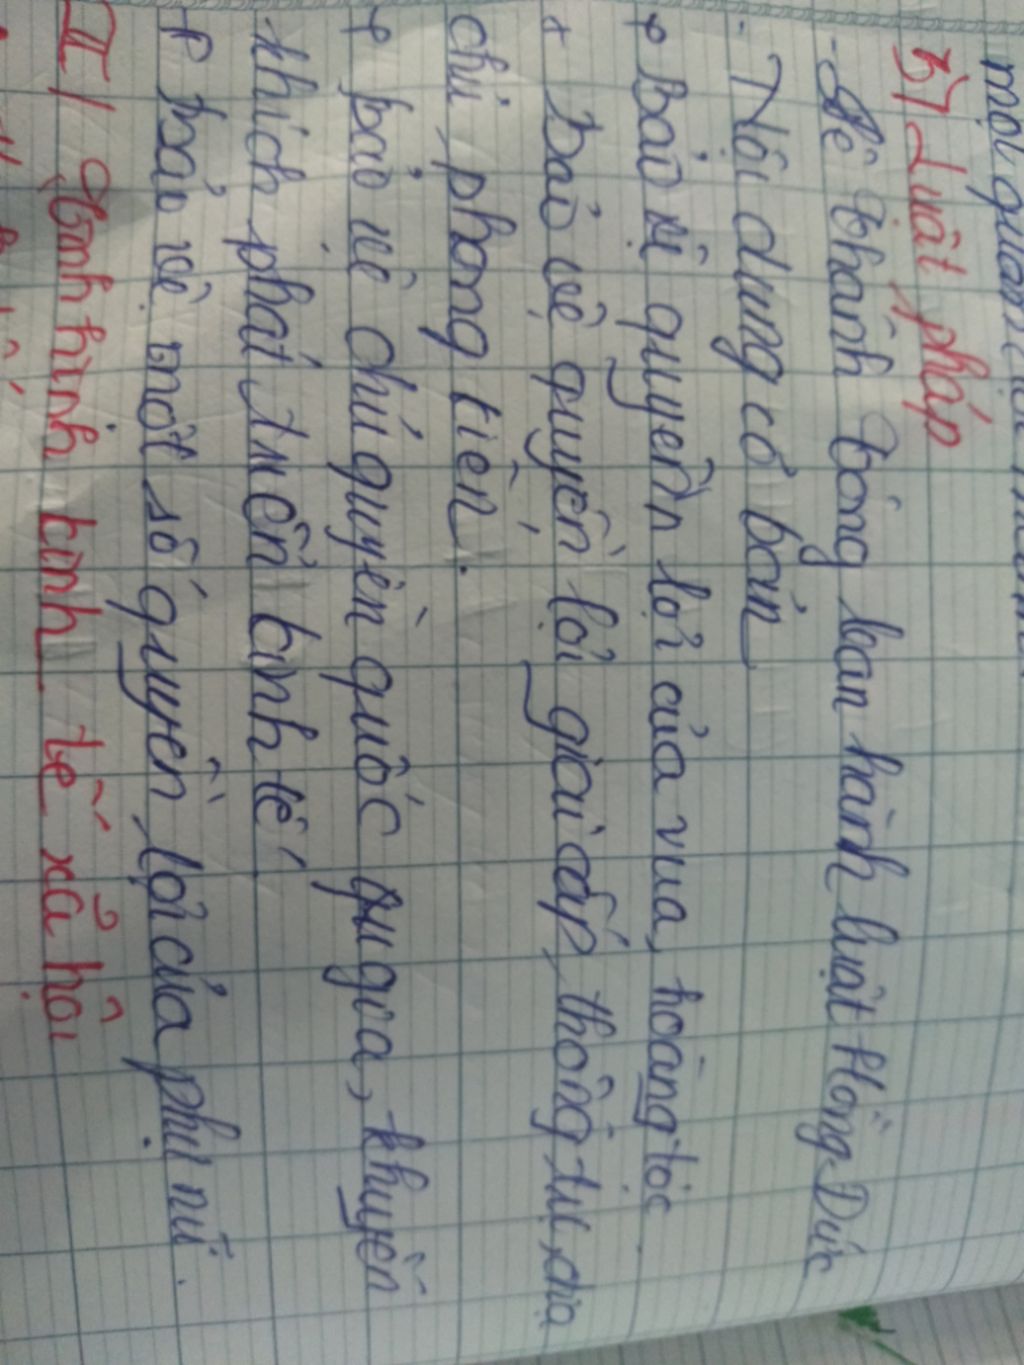 mọi quan
b) Luật pháp
- Lê Thánh Tông ban hành luật Hồng Đức
- Nội dung cơ bản
+ Bảo vệ quyền lợi của vua, hoàng tộc
+ Bảo vệ quyền lợi giai cấp thống trị, địa
chủ phong kiến.
+ bảo vệ chủ quyền quốc gia, khuyến
khích phát triển kinh tế
+ Bảo vệ một số quyền lợi của phụ nữ.
II/ Tình hình kinh tế xã hội